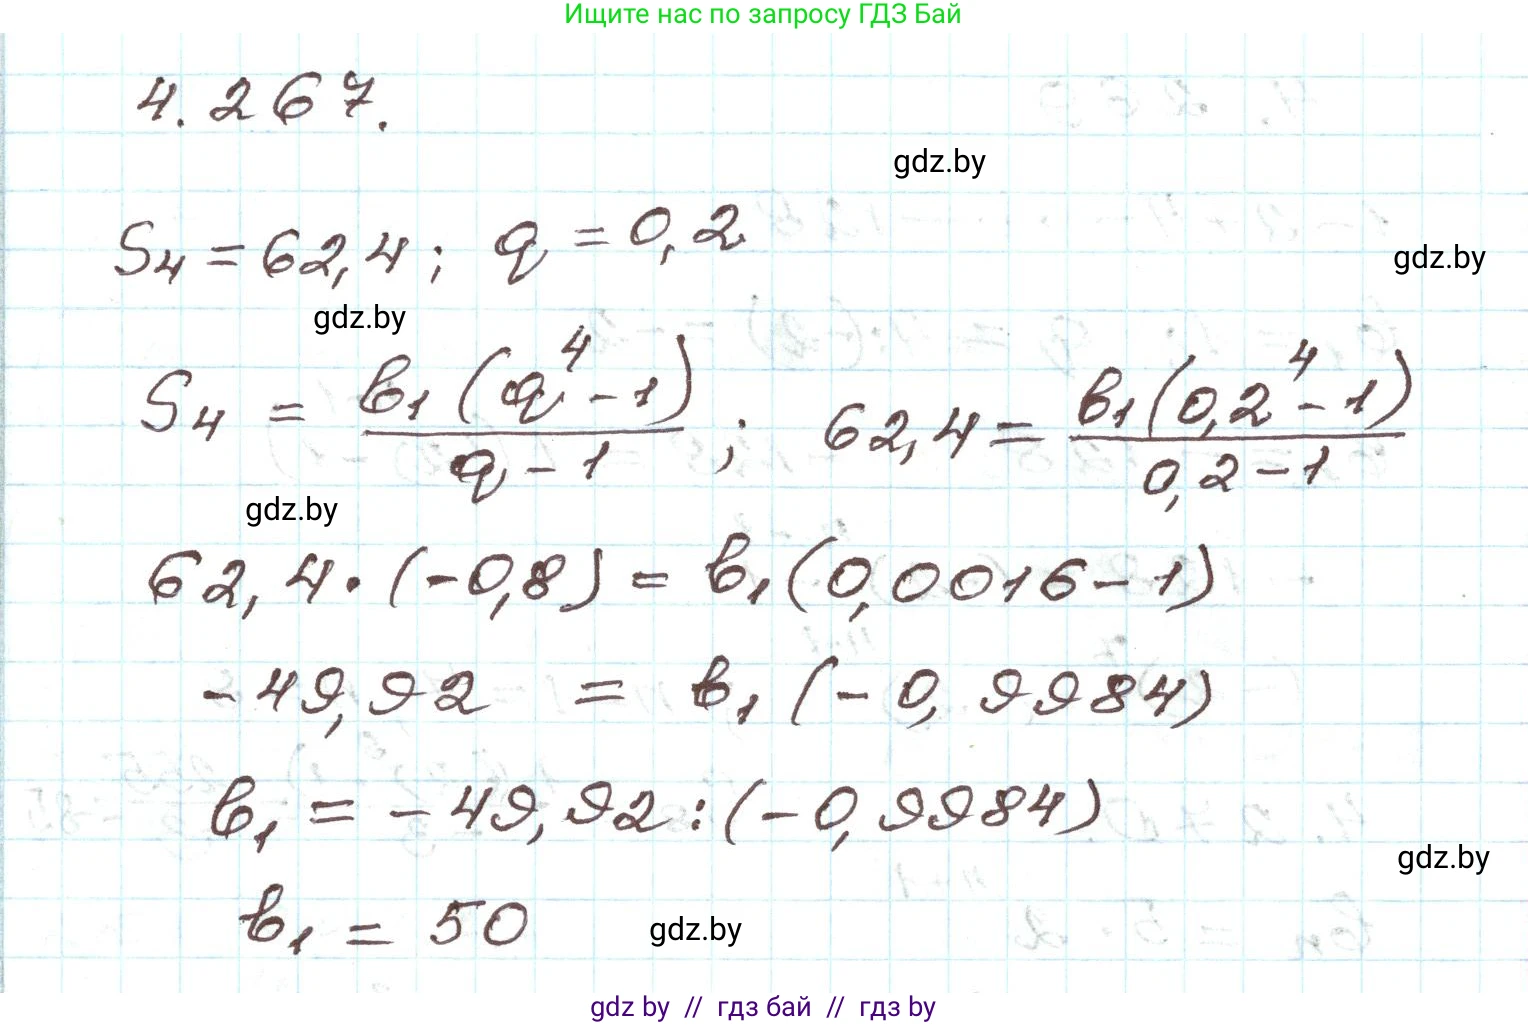 Ищите нас по запросу ГДЗ Бай
4.267.
gdz.by
S₄ = 62,4; q = 0,2
gdz.by
gdz.by
S₄ = в₁(q⁴ - 1) / q - 1 ; 62,4 = в₁(0,2⁴ - 1) / 0,2 - 1
gdz.by
62,4 · (-0,8) = в₁(0,0016 - 1)
-49,92 = в₁(-0,9984)
в₁ = -49,92 : (-0,9984)
gdz.by
в₁ = 50
gdz.by
gdz by // гдз бай // гдз by